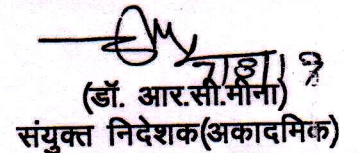 (डॉ. आर.सी.मीना)
संयुक्त निदेशक(अकादमिक)